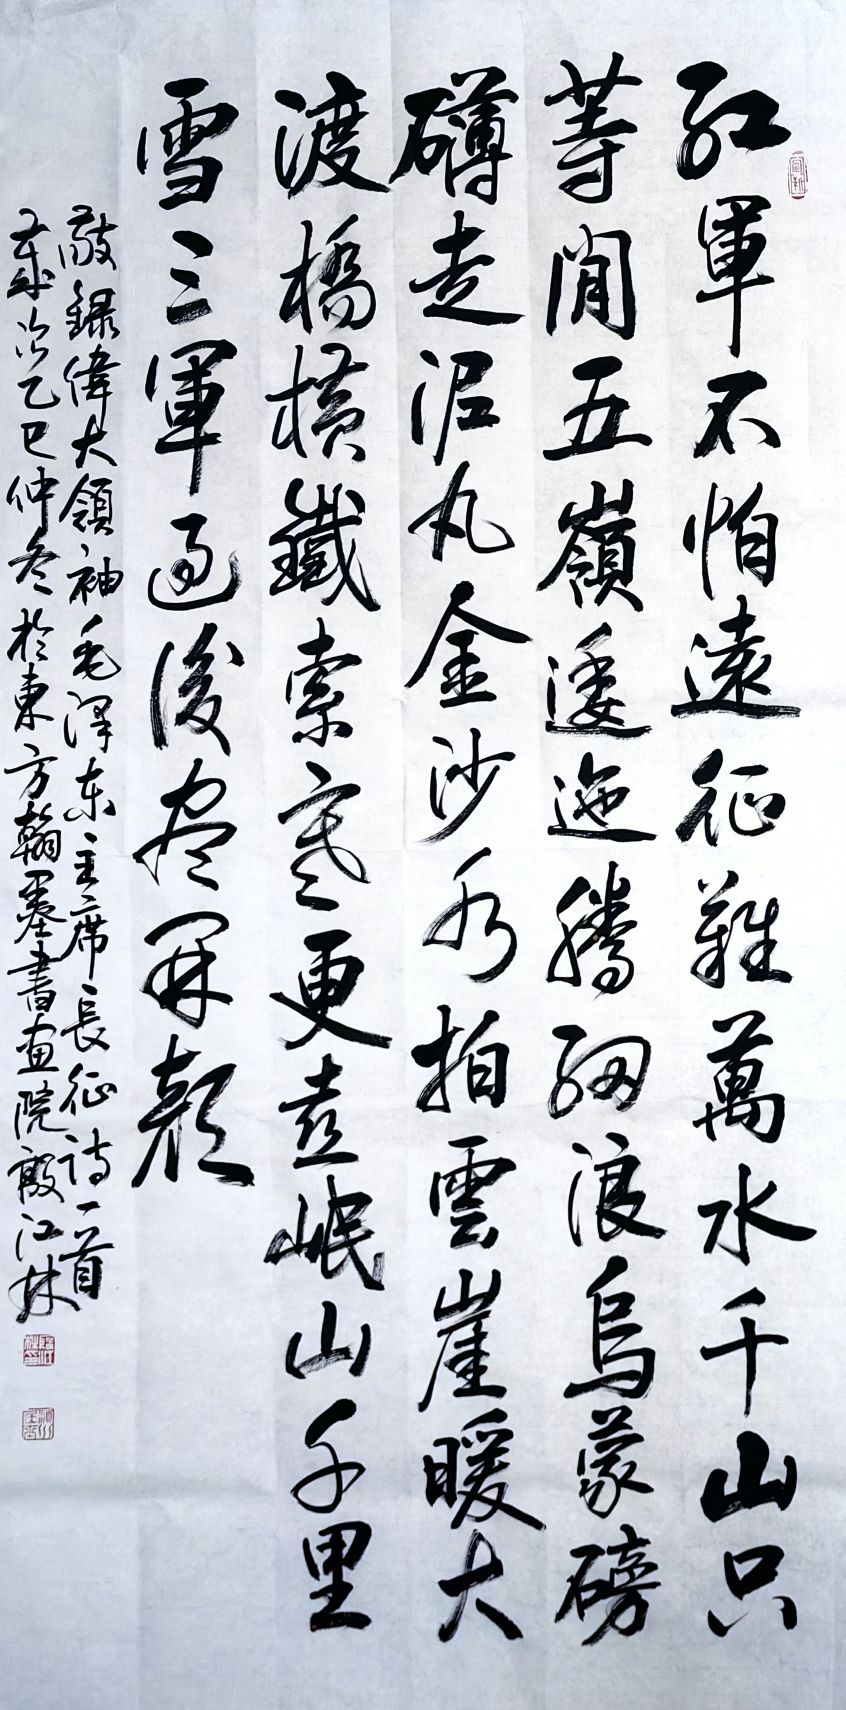 紅軍不怕遠征難萬水千山只
等閒五嶺逶迤騰細浪烏蒙磅
礴走泥丸金沙水拍雲崖暖大
渡橋橫鐵索寒更喜岷山千里
雪三軍過後盡開顏
敬錄偉大領袖毛澤东主席長征詩一首
歲次乙巳仲冬於東方翰墨書畫院殷江林